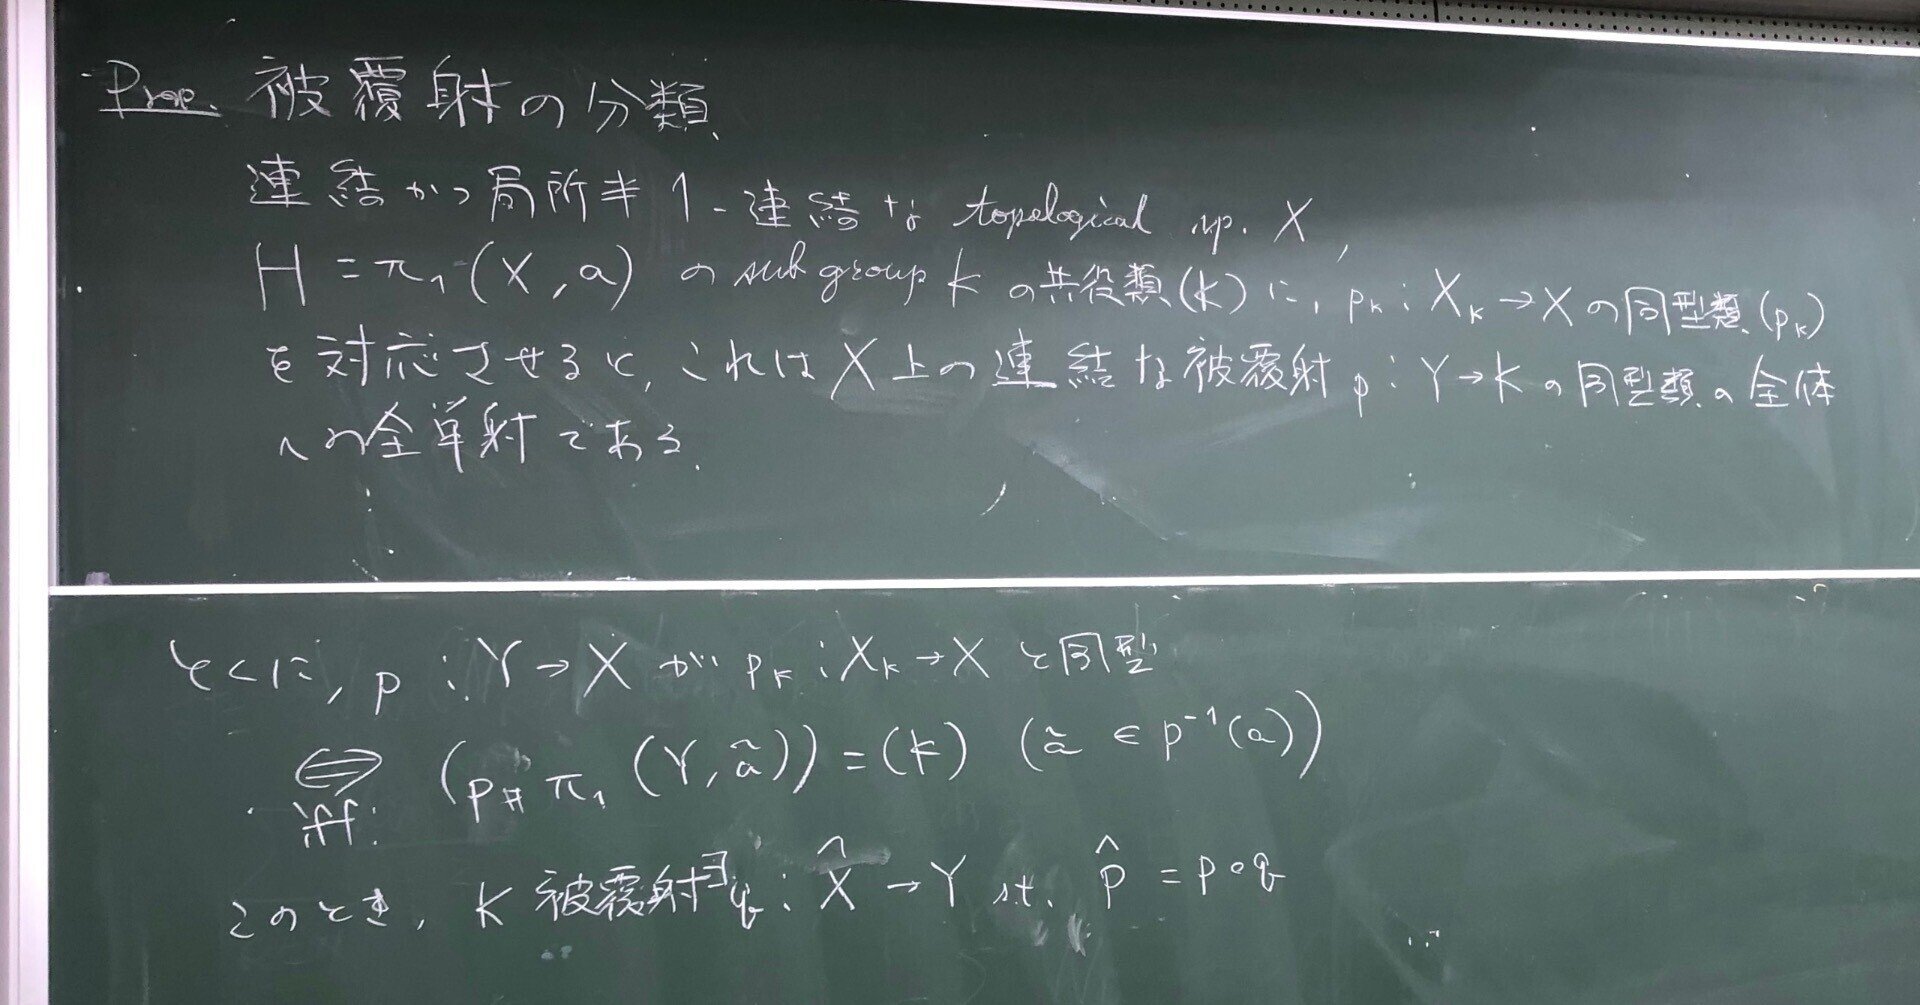 Prop. 被覆射の分類
連結かつ局所半1-連結な topological sp. X,
H = π₁(X, a) の subgroup K の共役類(K)に, p_K : X_K → X の同型類(p_K)
を対応させると, これは X上の連結な被覆射 p : Y → K の同型類の全体
への全単射である.
とくに, p : Y → X が p_K : X_K → X と同型
⇔ (p_# π₁(Y, ã)) = (K) (ã ∈ p⁻¹(a))
iff:
このとき, K 被覆射 ∃q : X̂ → Y s.t. p̂ = p∘q